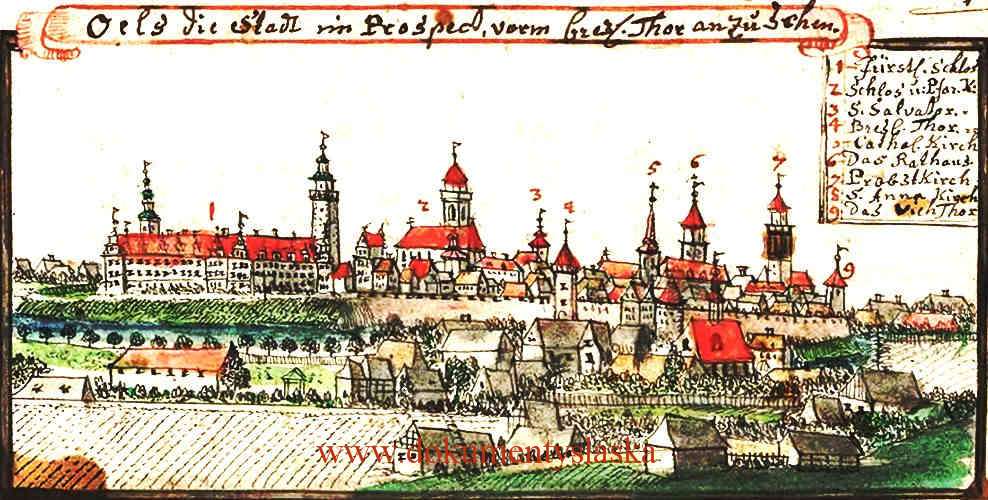 Oels die Stadt im Prospect, vorm Bresl. Thor anzusehen.
1 Fürstl. Schlos
2 Schlos u: Pfar. K:
3 S. Salvator.
4 Bresl. Thor.
5 Cathol. Kirch
6 Das Rathaus
7 Probst Kirch
8 S. Anna Kirch
9 Das Vieh Thor
1
2
3
4
5
6
7
9
www.dokumentyslaska